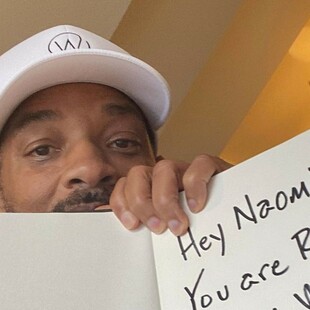 W
Hey Naomi
You are